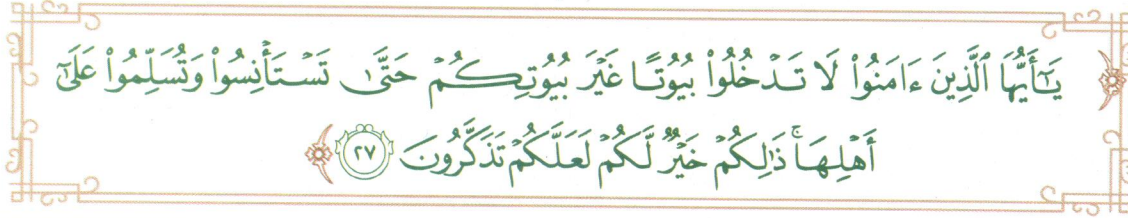 يَـٰٓأَيُّهَا ٱلَّذِينَ ءَامَنُوا۟ لَا تَدْخُلُوا۟ بُيُوتًا غَيْرَ بُيُوتِكُمْ حَتَّىٰ تَسْتَأْنِسُوا۟ وَتُسَلِّمُوا۟ عَلَىٰٓ
أَهْلِهَا ۚ ذَٰلِكُمْ خَيْرٌ لَّكُمْ لَعَلَّكُمْ تَذَكَّرُونَ ٢٧